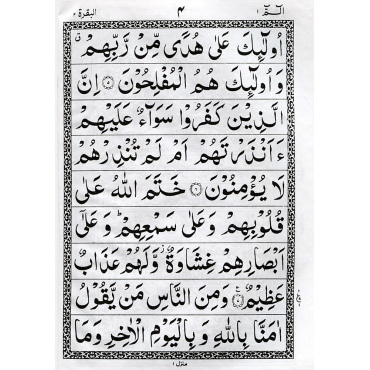 البقرة ٢ ۴ الٓمّٓ ١
اُولٰٓئِكَ عَلٰى هُدًى مِّنْ رَّبِّهِمْ ق
وَاُولٰٓئِكَ هُمُ الْمُفْلِحُوْنَ ۝٥ اِنَّ
الَّذِيْنَ كَفَرُوْا سَوَآءٌ عَلَيْهِمْ
ءَاَنْذَرْتَهُمْ اَمْ لَمْ تُنْذِرْهُمْ
لَا يُؤْمِنُوْنَ ۝٦ خَتَمَ اللّٰهُ عَلٰى
قُلُوْبِهِمْ وَعَلٰى سَمْعِهِمْ ؕ وَعَلٰٓى
اَبْصَارِهِمْ غِشَاوَةٌ ز وَّلَهُمْ عَذَابٌ
عَظِيْمٌ ۝٧ ع وَمِنَ النَّاسِ مَنْ يَّقُوْلُ
اٰمَنَّا بِاللّٰهِ وَ بِالْيَوْمِ الْاٰخِرِ وَمَا
منزل ١